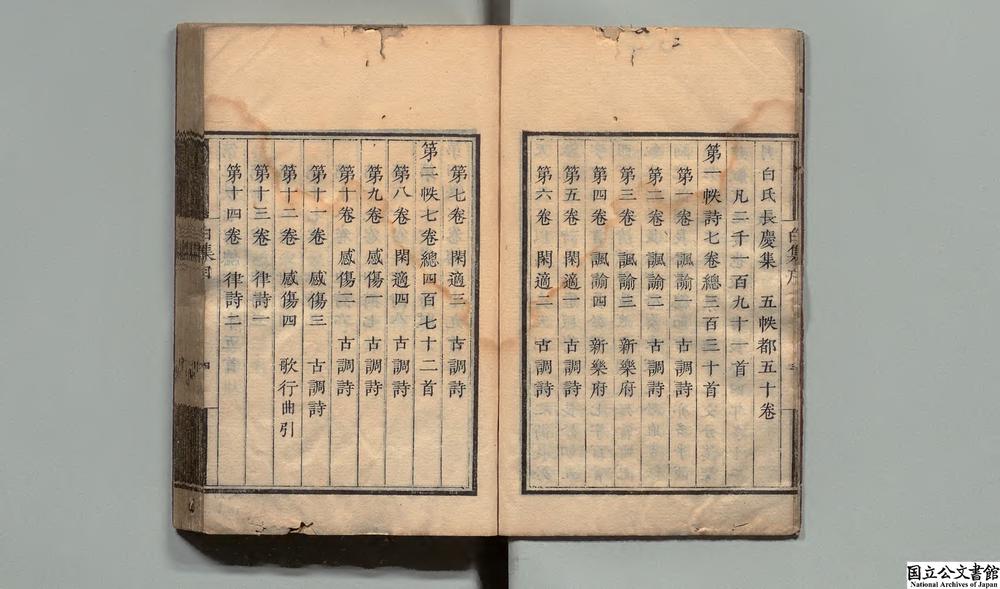 白氏長慶集 五帙都五十卷
凡二千一百九十一首
第一帙詩七卷總三百三十首
第一卷 諷諭一 古調詩
第二卷 諷諭二 古調詩
第三卷 諷諭三 新樂府
第四卷 諷諭四 新樂府
第五卷 閑適一 古調詩
第六卷 閑適二 古調詩
第七卷 閑適三 古調詩
第二帙七卷總四百七十二首
第八卷 閑適四 古調詩
第九卷 感傷一 古調詩
第十卷 感傷二 古調詩
第十一卷 感傷三 古調詩
第十二卷 感傷四 歌行曲引
第十三卷 律詩一
第十四卷 律詩二
国立公文書館
National Archives of Japan